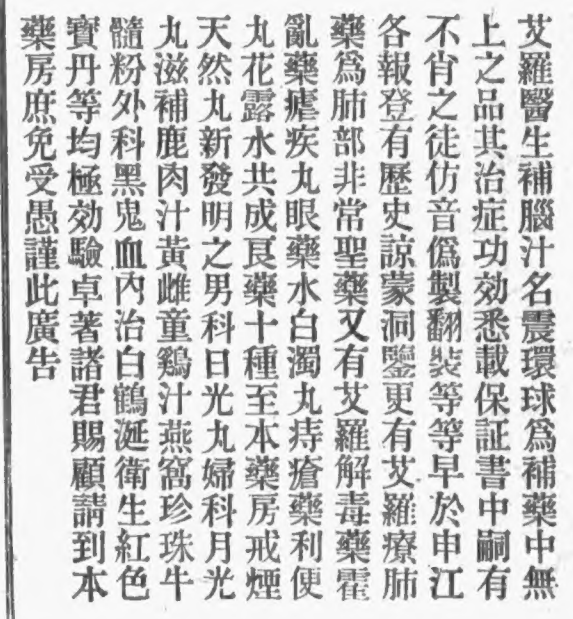 艾羅醫生補腦汁名震環球爲補藥中無
上之品其治症功効悉載保証書中嗣有
不肖之徒仿音僞製翻裝等等早於申江
各報登有歷史諒蒙洞鑒更有艾羅療肺
藥爲肺部非常聖藥又有艾羅解毒藥霍
亂藥瘧疾丸眼藥水白濁丸痔瘡藥利便
丸花露水共成良藥十種至本藥房戒煙
天然丸新發明之男科日光丸婦科月光
丸滋補鹿肉汁黃雌童鷄汁燕窩珍珠牛
髓粉外科黑鬼血內治白鶴涎衛生紅色
寳丹等均極効驗卓著諸君賜顧請到本
藥房庶免受愚謹此廣告